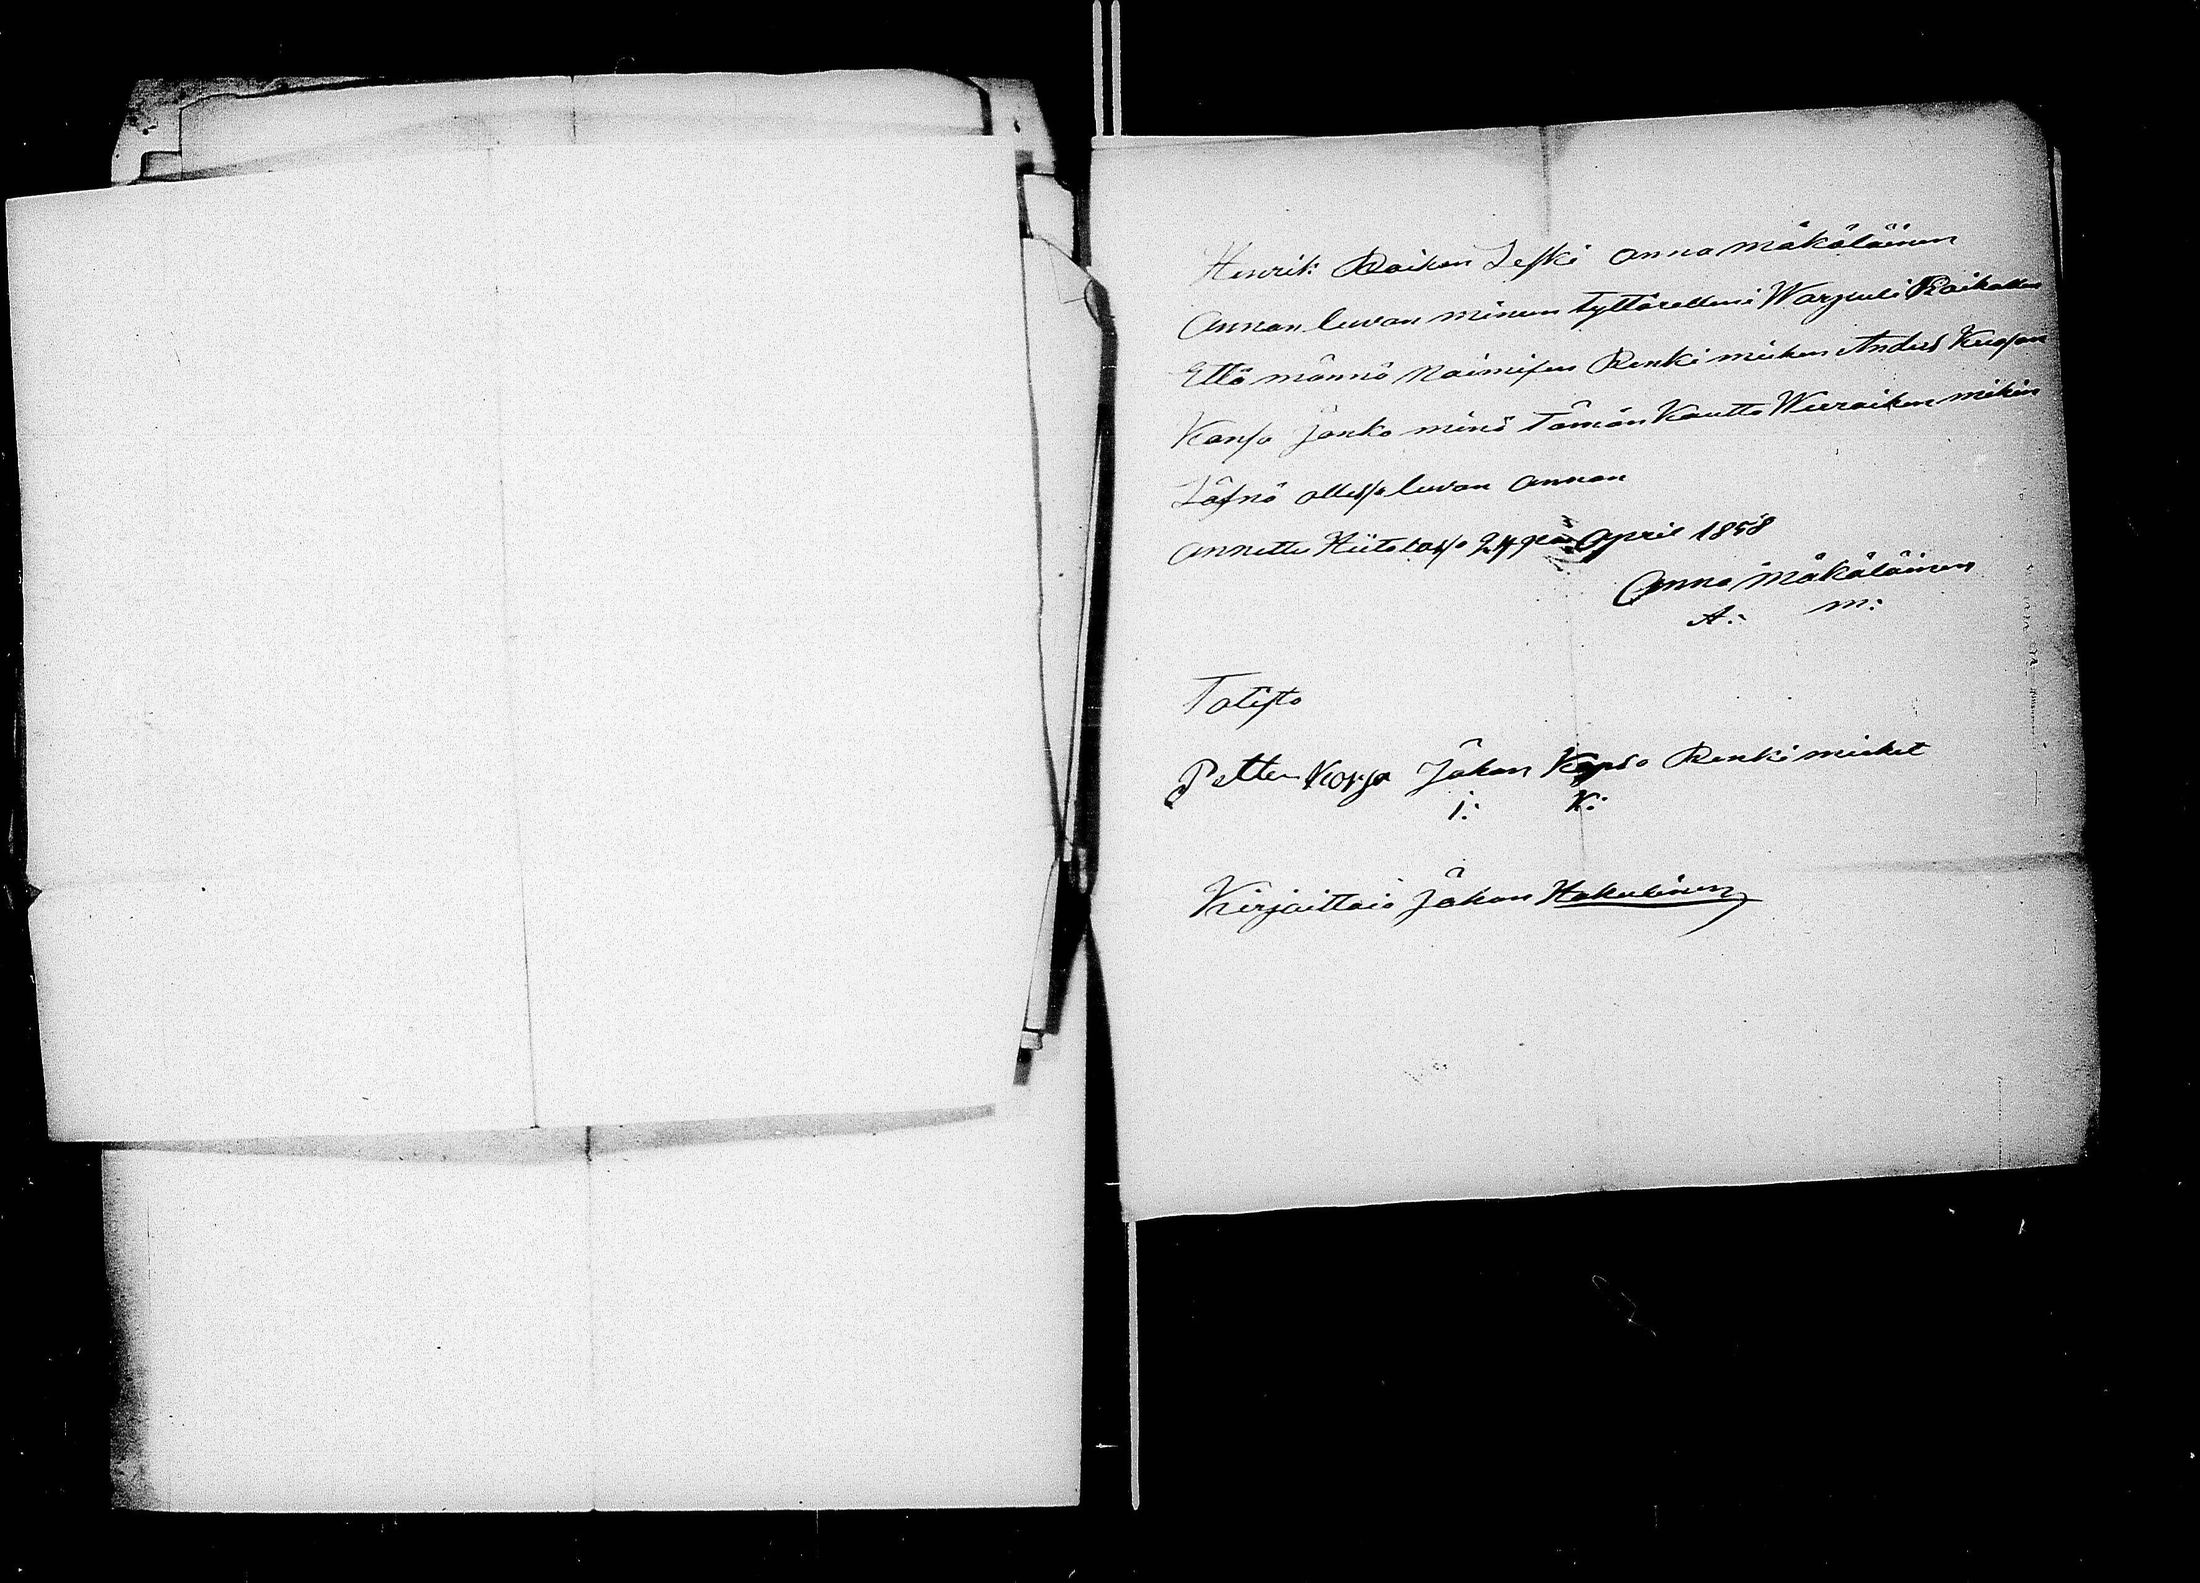 Henrik Raikan Leski Anna Mäköläinen
Annan luvan minun tyttärelleni Warpuuli Raikallen
Että männä Naimisen Renki miehen Anders Kuosan
Kansa Jonko minä Tämän Kautta Wieraiken mikin
Läsnä ollessa luvan Annan
Annettu Hiitolassa 24 pän April 1858
Anna Mäköläinen
A: M:
Totista
Petter Korja Johan Kapso Renki miehet
j: K:
Kirjoittais Johan Hakulinen